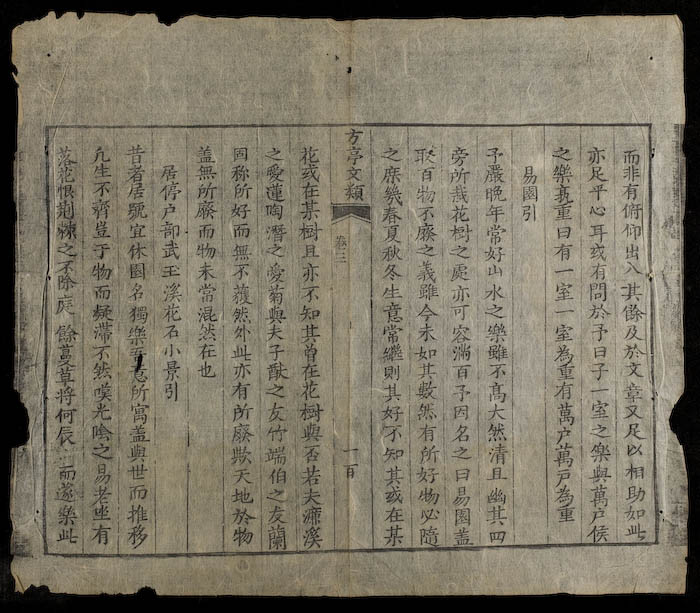 而非有俯仰出入其餘及於文章又足以相助如此
亦足平心耳或有問於予曰子一室之樂與萬戶侯
之樂孰重曰有一室一室為重有萬户萬户為重
易園引
予嚴晚年常好山水之樂雖不髙大然清且幽其四
旁所栽花樹之處亦可容滿百予因名之曰易園盖
取百物不廢之義雖今未如其數然有所好物必隨
之庶幾春夏秋冬生意常繼則其好不知其或在某
方亭文類
卷三
一百
花或在某樹且亦不知其曽在花樹與否若夫濂溪
之愛蓮陶潛之愛菊與夫子猷之友竹端伯之友蘭
固称所好而無不蕧然外此亦有所廢歟天地於物
盖無所廢而物未當混然在也
居停户部武玉溪花石小景引
昔者居號宜休園名獨樂意所寓盖與世而推移
凢生不齊豈于物而凝滯不然嘆光陰之易老坐有
落花恨荆棘之不除庭餘蔓草将何辰而遂樂此